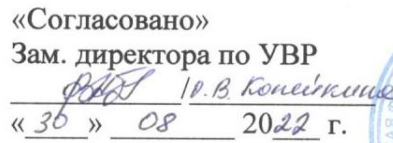 «Согласовано»
Зам. директора по УВР
/О.В. Копейкина
«30» 08 2022 г.